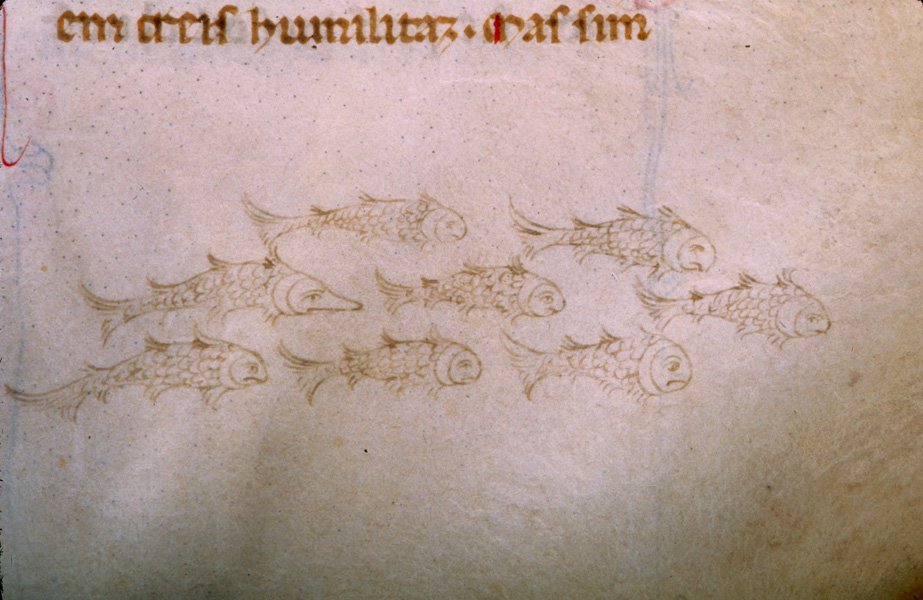 em ceteris humilitaꝫ · Massim